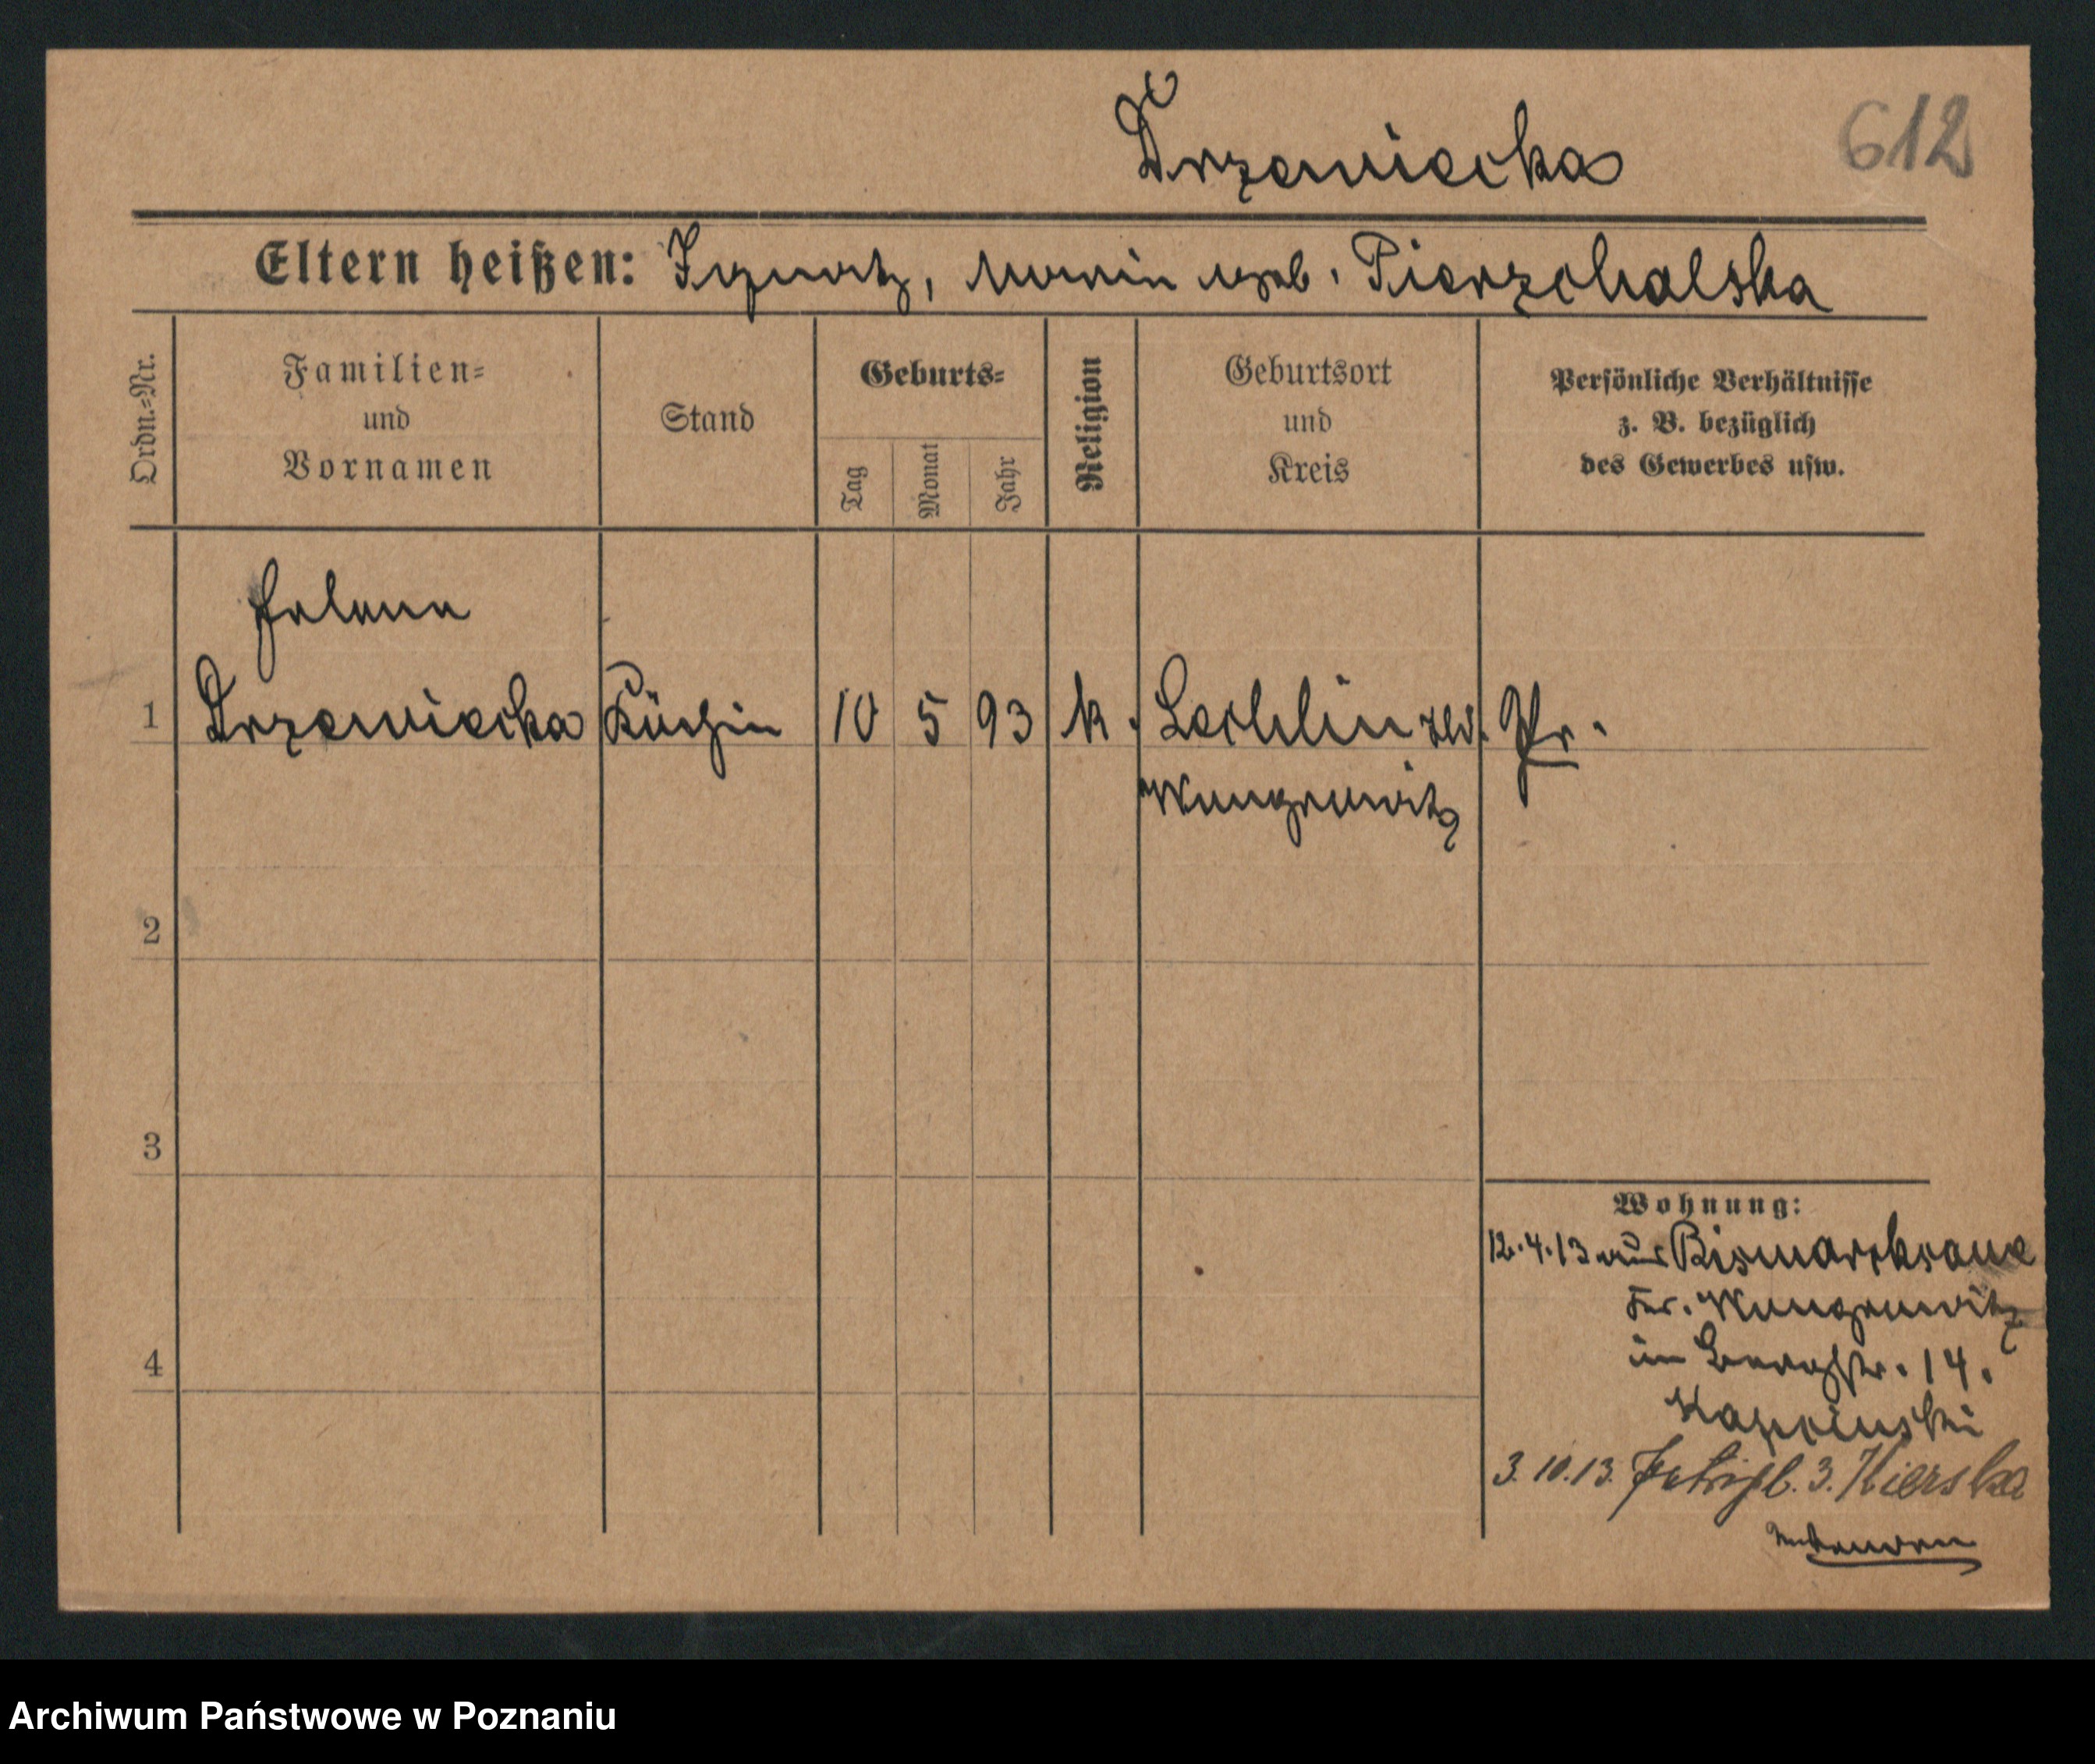 Drzewiecka 612
Eltern heißen: Ignatz, Maria geb. Pierzchalska
Ordn.=Nr.
Familien=
und
Vornamen
Stand
Geburts=
Tag
Monat
Jahr
Religion
Geburtsort
und
Kreis
Persönliche Verhältnisse
z. B. bezüglich
des Gewerbes usw.
Helena
1 Drzewiecka Köchin 10 5 93 k. Lechlin Kr. Pr.
Wongrowitz
2
3
4
Wohnung:
12.4.13 aus Bismarcksaue
Kr. Wongrowitz
in Bergstr. 14.
3.10.13. 3. Kierska